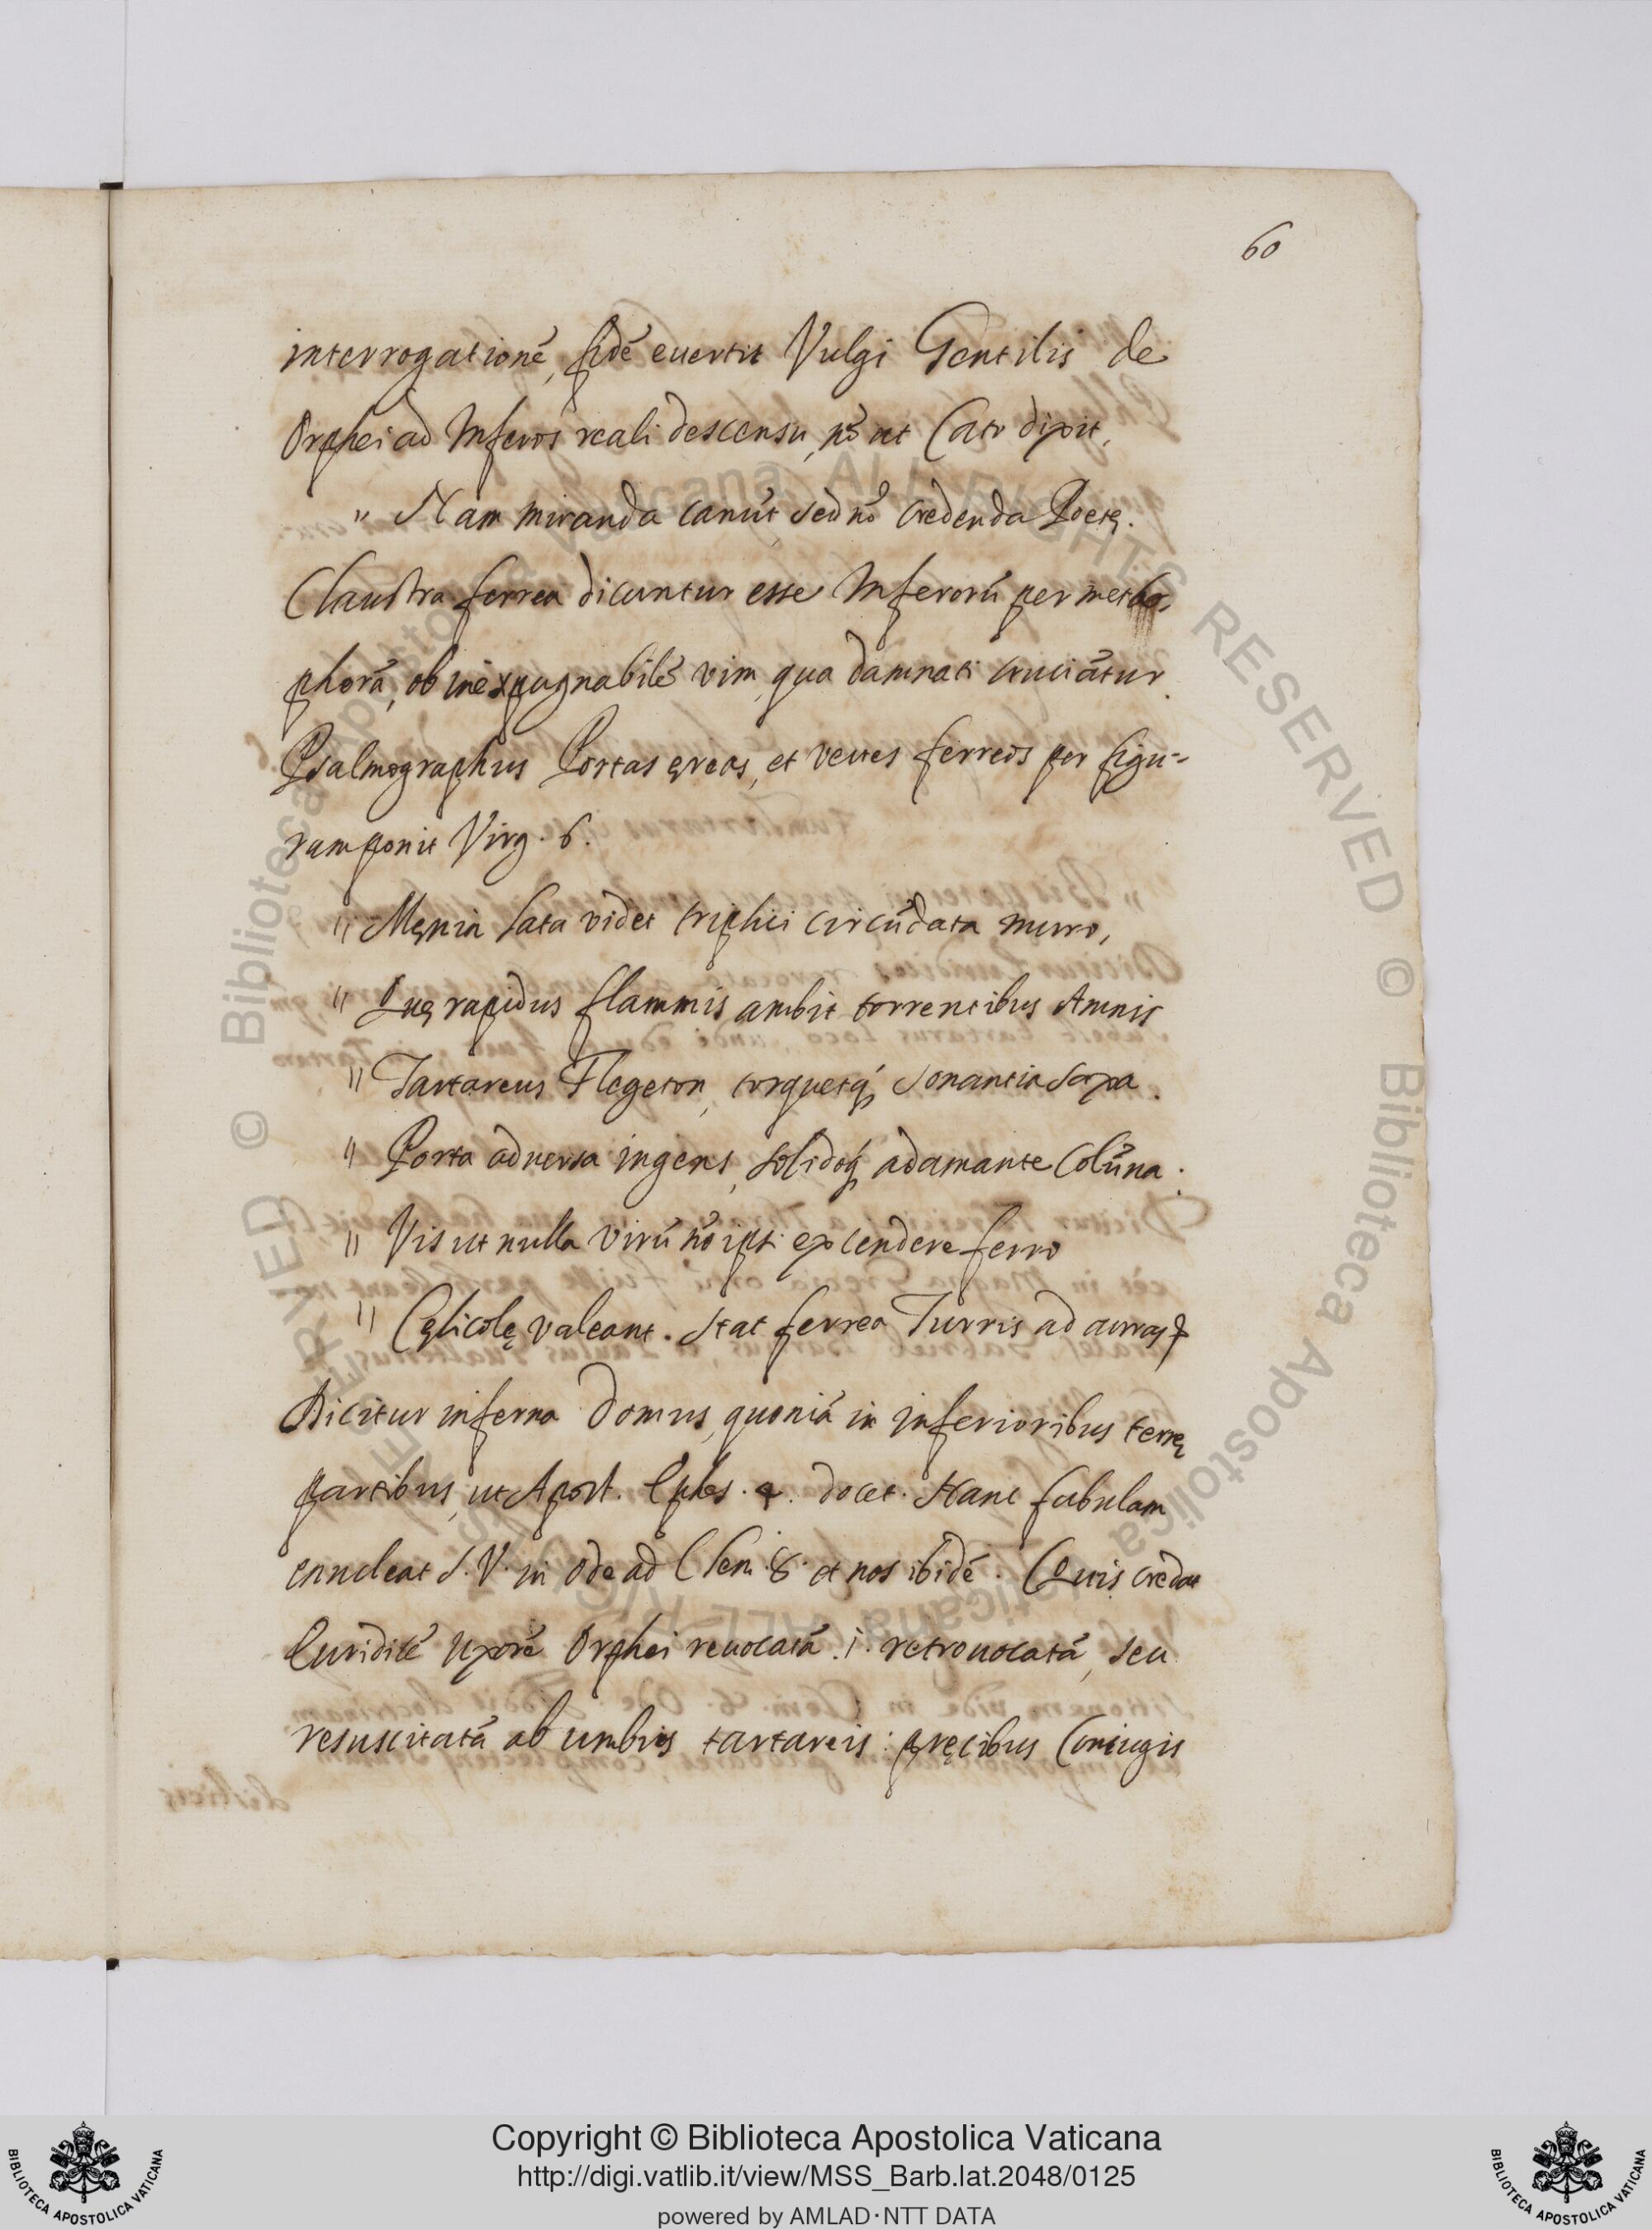 60
interrogationẽ, fidẽ euertit Vulgi Gentilis de
Orphei ad Inferos reali descensu, nõ ut Cato dixit,
" Nam miranda canũt, sed nõ credenda Poetę.
Claustra ferrea dicuntur esse Inferorũ per meta-
phorã, ob inexpugnabilẽ vim, qua damnati cruciãtur.
Psalmographus Portas ęreas, et vectes ferreos per figu-
ram ponit Virg. 6.
" Męnia lata videt triplici circũdata muro,
" Quę rapidus flammis ambit torrentibus Amnis
" Tartareus Flegeton, torquetq́ sonantia saxa.
" Porta aduersa ingens, solidoq́ adamante Colũna.
" Vis ut nulla virũ nõ ipsi excendere ferro
" Cęlicolę valeant. Stat ferrea Turris ad auras &
Dicitur inferna Domus, quoniã in inferioribus terrę
partibus, ut Apost. Ephes. 4. docet. Hanc fabulam
enucleat S. V. in Ode ad Clem. 8. et nos ibidẽ. (Quis credat
Euridicẽ uxorẽ Orphei reuocatã .i. retrouocatã, seu
resuscitatã ab umbris tartareis: pręcibus Coniugis
Copyright © Biblioteca Apostolica Vaticana
http://digi.vatlib.it/view/MSS_Barb.lat.2048/0125
powered by AMLAD·NTT DATA
BIBLIOTECA APOSTOLICA VATICANA
BIBLIOTECA APOSTOLICA VATICANA